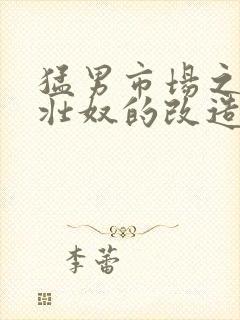 猛男市場之
壯奴的改造
李蕾